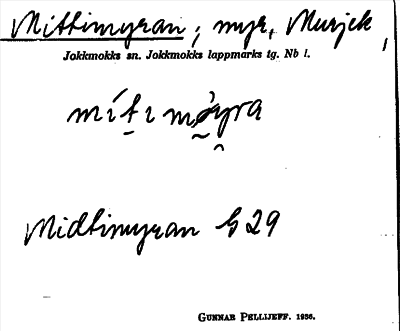 Mittimyran, myr, Murjek,
Jokkmokks sn. Jokkmokks lappmarks tg. Nb l.
Midtimyran G 29
GUNNAR PELLIJEFF. 1956.